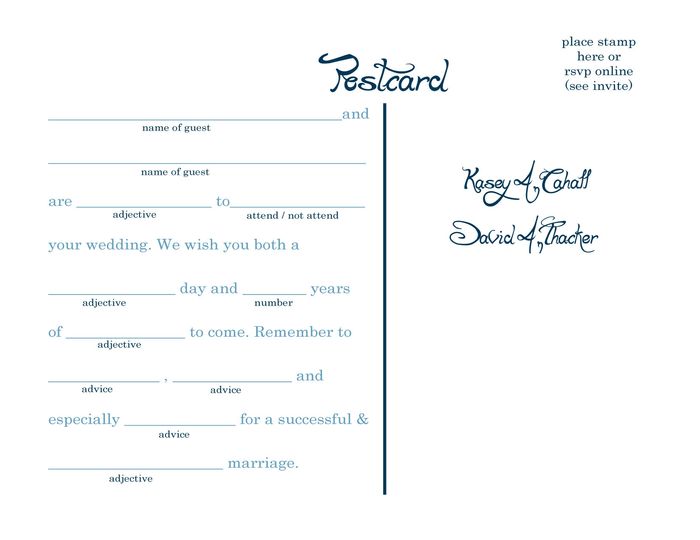 Postcard
place stamp
here or
rsvp online
(see invite)
____________________and
name of guest
____________________
name of guest
are __________ to__________
adjective attend / not attend
your wedding. We wish you both a
__________ day and _____ years
adjective number
of __________ to come. Remember to
adjective
__________ , __________ and
advice advice
especially __________ for a successful &
advice
____________________ marriage.
adjective
Kasey A. Cahall
David A. Thacker